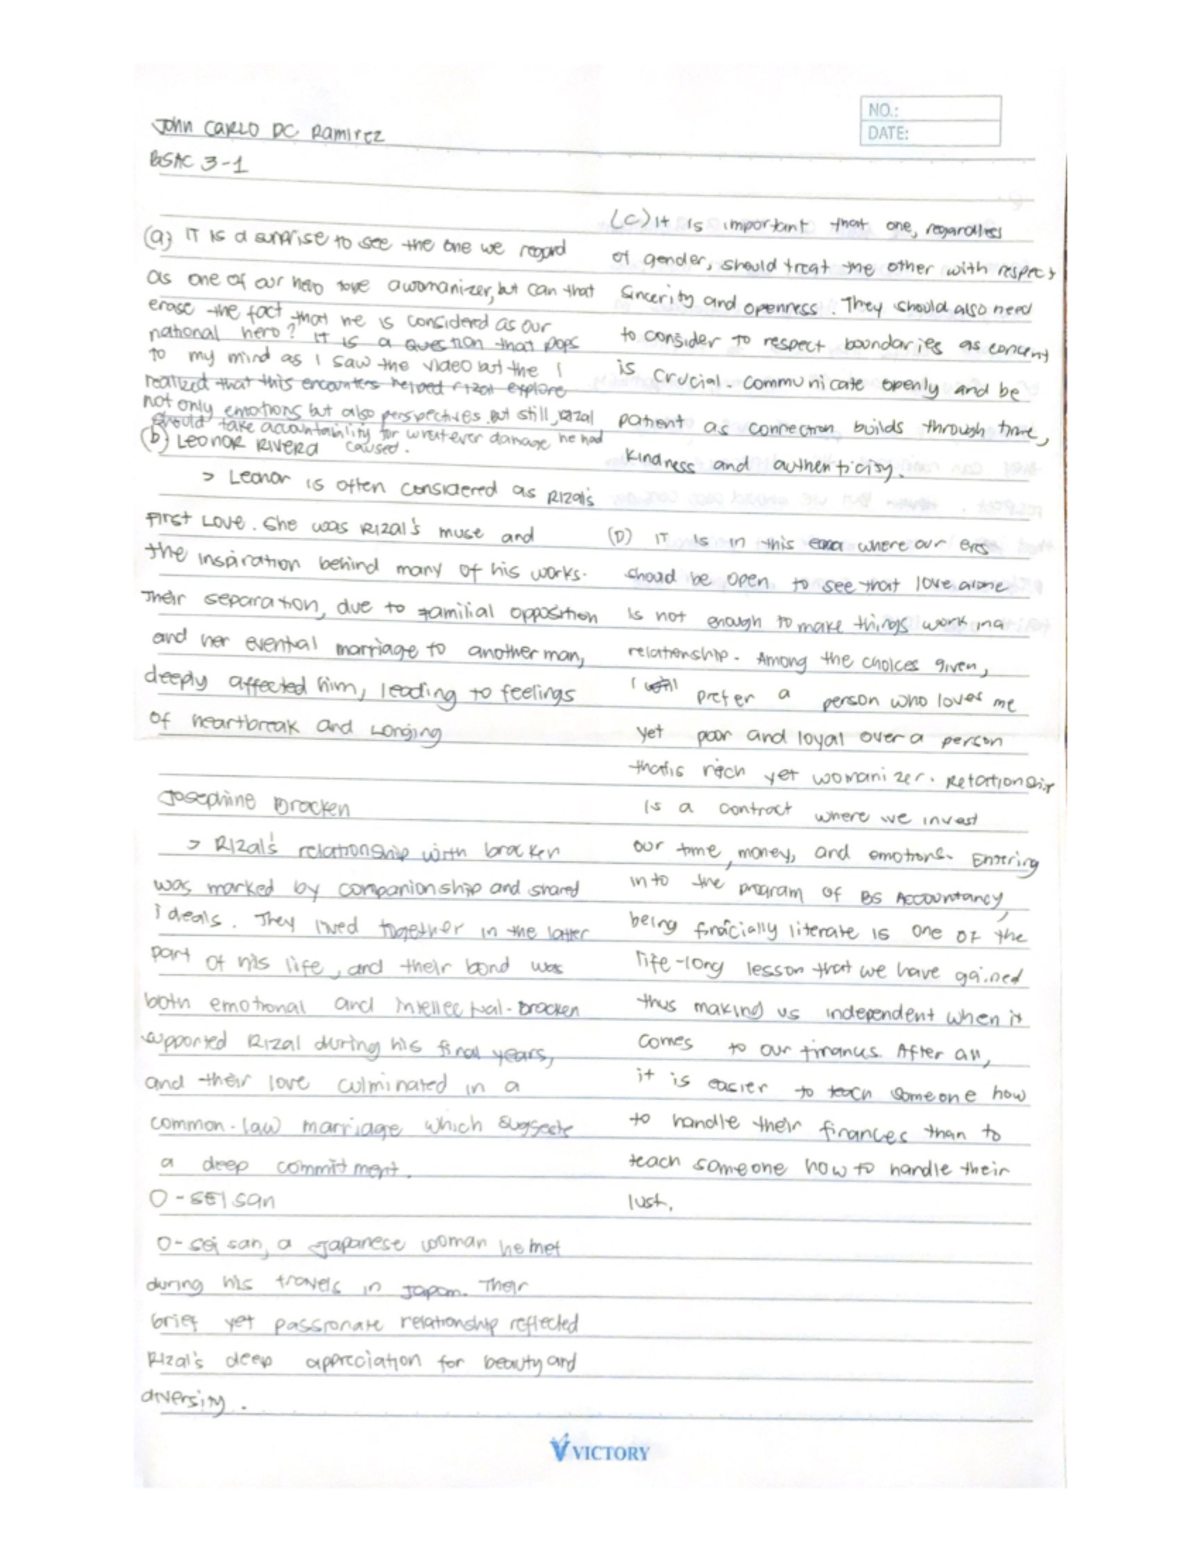 NO.:
DATE:
John CARLO DC Ramirez
BSAC 3-1
(a) IT IS a surprise to see the one we regard
as one of our hero to be a womanizer, but can that
erase the fact that he is considered as our
national hero? IT IS a question that pops
to my mind as I saw the video but the I
realized that this encounters helped rizal explore
not only emotions but also perspectives. But still, rizal
should take accountability for whatever damage he had
(b) LEONOR RIVERA caused.
> Leonor is often considered as Rizal's
First Love. She was Rizal's muse and
the inspiration behind many of his works.
Their separation, due to Familial opposition
and her evential marriage to another man,
deeply affected him, leading to feelings
of heartbreak and Longing
Josephine Bracken
> Rizal's relationship with bracken
was marked by companionship and shared
ideals. They lived together in the latter
part of his life, and their bond was
both emotional and intellectual. Bracken
supported Rizal during his final years,
and their love culminated in a
common-law marriage which suggests
a deep commitment.
O-SEI San
O-Sei san, a Japanese woman he met
during his travels in Japan. Their
brief yet passionate relationship reflected
Rizal's deep appreciation for beauty and
diversity.
(C) It is important that one, regardless
of gender, should treat the other with respect
sincerity and openness. They should also need
to consider to respect boundaries as concent
is crucial. Communicate openly and be
patient as connection builds through time,
kindness and authenticity.
(D) IT is in this where our eyes
should be open to see that love alone
is not enough to make things work in a
relationship. Among the choices given,
I will prefer a person who loves me
yet poor and loyal over a person
thatis rich yet womanizer. Relationship
is a contract where we invest
our time, money, and emotions. Entering
into the program of BS Accountancy,
being finacially literate is one of the
life-long lesson that we have gained
thus making us independent when it
comes to our finances. After all,
it is easier to teach someone how
to handle their finances than to
teach someone how to handle their
lust.
VICTORY